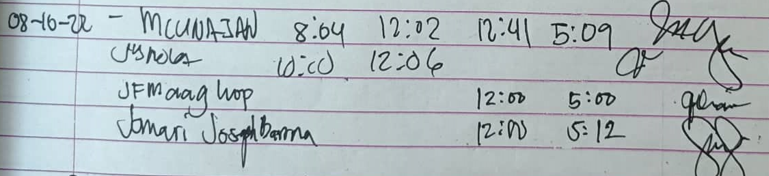 08-16-22 - MCUNAJAN 8:04 12:02 12:41 5:09
10:00 12:06
JFMaaghop 12:00 5:00
Jomari Joseph Barma 12:00 5:12